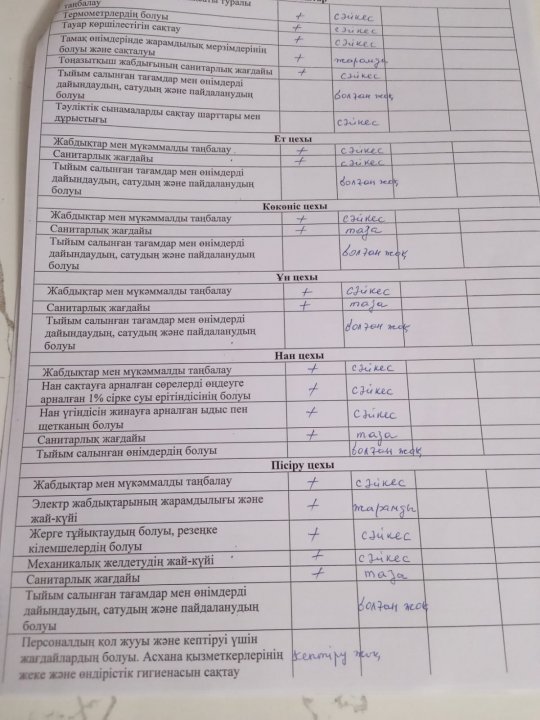 таңбалау
Термометрлердің болуы + сәйкес
Тауар көршілестігін сақтау + сәйкес
Тамақ өнімдерінде жарамдылық мерзімдерінің + сәйкес
болуы және сақталуы
Тоңазытқыш жабдығының санитарлық жағдайы + жарамды
Тыйым салынған тағамдар мен өнімдерді сәйкес
дайындаудың, сатудың және пайдаланудың болған жоқ
болуы
Тәуліктік сынамаларды сақтау шарттары мен сәйкес
дұрыстығы
Ет цехы
Жабдықтар мен мүкәммалды таңбалау + сәйкес
Санитарлық жағдайы + сәйкес
Тыйым салынған тағамдар мен өнімдерді
дайындаудың, сатудың және пайдаланудың болған жоқ
болуы
Көкөніс цехы
Жабдықтар мен мүкәммалды таңбалау + сәйкес
Санитарлық жағдайы + таза
Тыйым салынған тағамдар мен өнімдерді
дайындаудың, сатудың және пайдаланудың болған жоқ
болуы
Ұн цехы
Жабдықтар мен мүкәммалды таңбалау + сәйкес
Санитарлық жағдайы + таза
Тыйым салынған тағамдар мен өнімдерді болған жоқ
дайындаудың, сатудың және пайдаланудың
болуы
Нан цехы
Жабдықтар мен мүкәммалды таңбалау + сәйкес
Нан сақтауға арналған сөрелерді өңдеуге + сәйкес
арналған 1% сірке суы ерітіндісінің болуы
Нан үгіндісін жинауға арналған ыдыс пен + сәйкес
щетканың болуы
Санитарлық жағдайы + таза
Тыйым салынған өнімдердің болуы болған жоқ
Пісіру цехы
Жабдықтар мен мүкәммалды таңбалау + сәйкес
Электр жабдықтарының жарамдылығы және + жарамды
жай-күйі
Жерге тұйықтаудың болуы, резеңке + сәйкес
кілемшелердің болуы
Механикалық желдетудің жай-күйі + сәйкес
Санитарлық жағдайы + таза
Тыйым салынған тағамдар мен өнімдерді
дайындаудың, сатудың және пайдаланудың болған жоқ
болуы
Персоналдың қол жууы және кептіруі үшін
жағдайлардың болуы. Асхана қызметкерлерінің кептіру жоқ
жеке және өндірістік гигиенасын сақтау